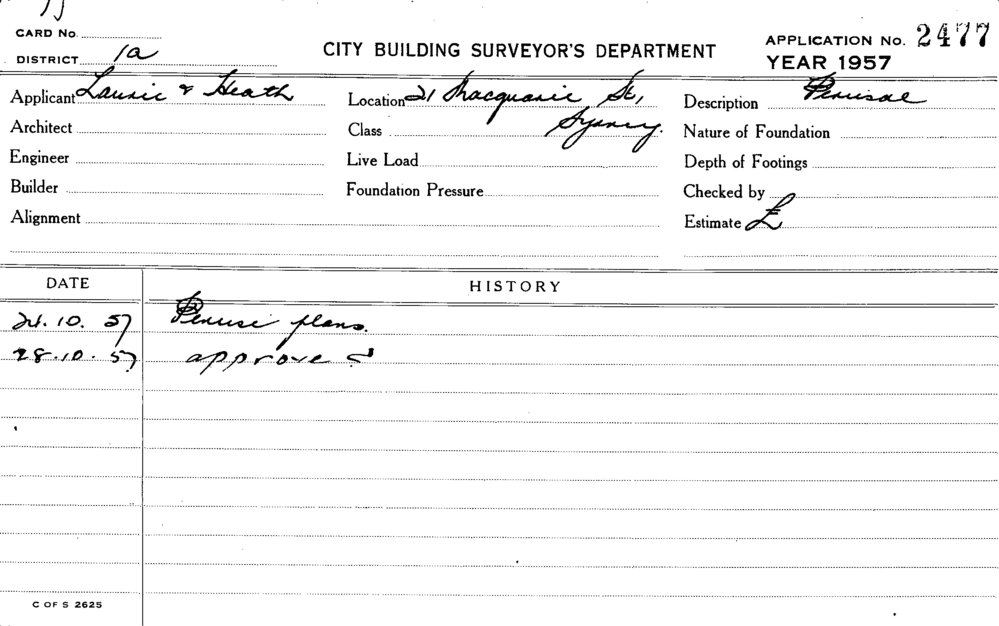 CARD No.
DISTRICT 1a
CITY BUILDING SURVEYOR'S DEPARTMENT
APPLICATION No. 2477
YEAR 1957
Applicant Laurie & Heath
Location 21 Macquarie St, Sydney.
Description Perusal
Architect
Class
Nature of Foundation
Engineer
Live Load
Depth of Footings
Builder
Foundation Pressure
Checked by
Alignment
Estimate £
DATE HISTORY
24.10.57 Peruse plans.
28.10.57 approved
C OF S 2625